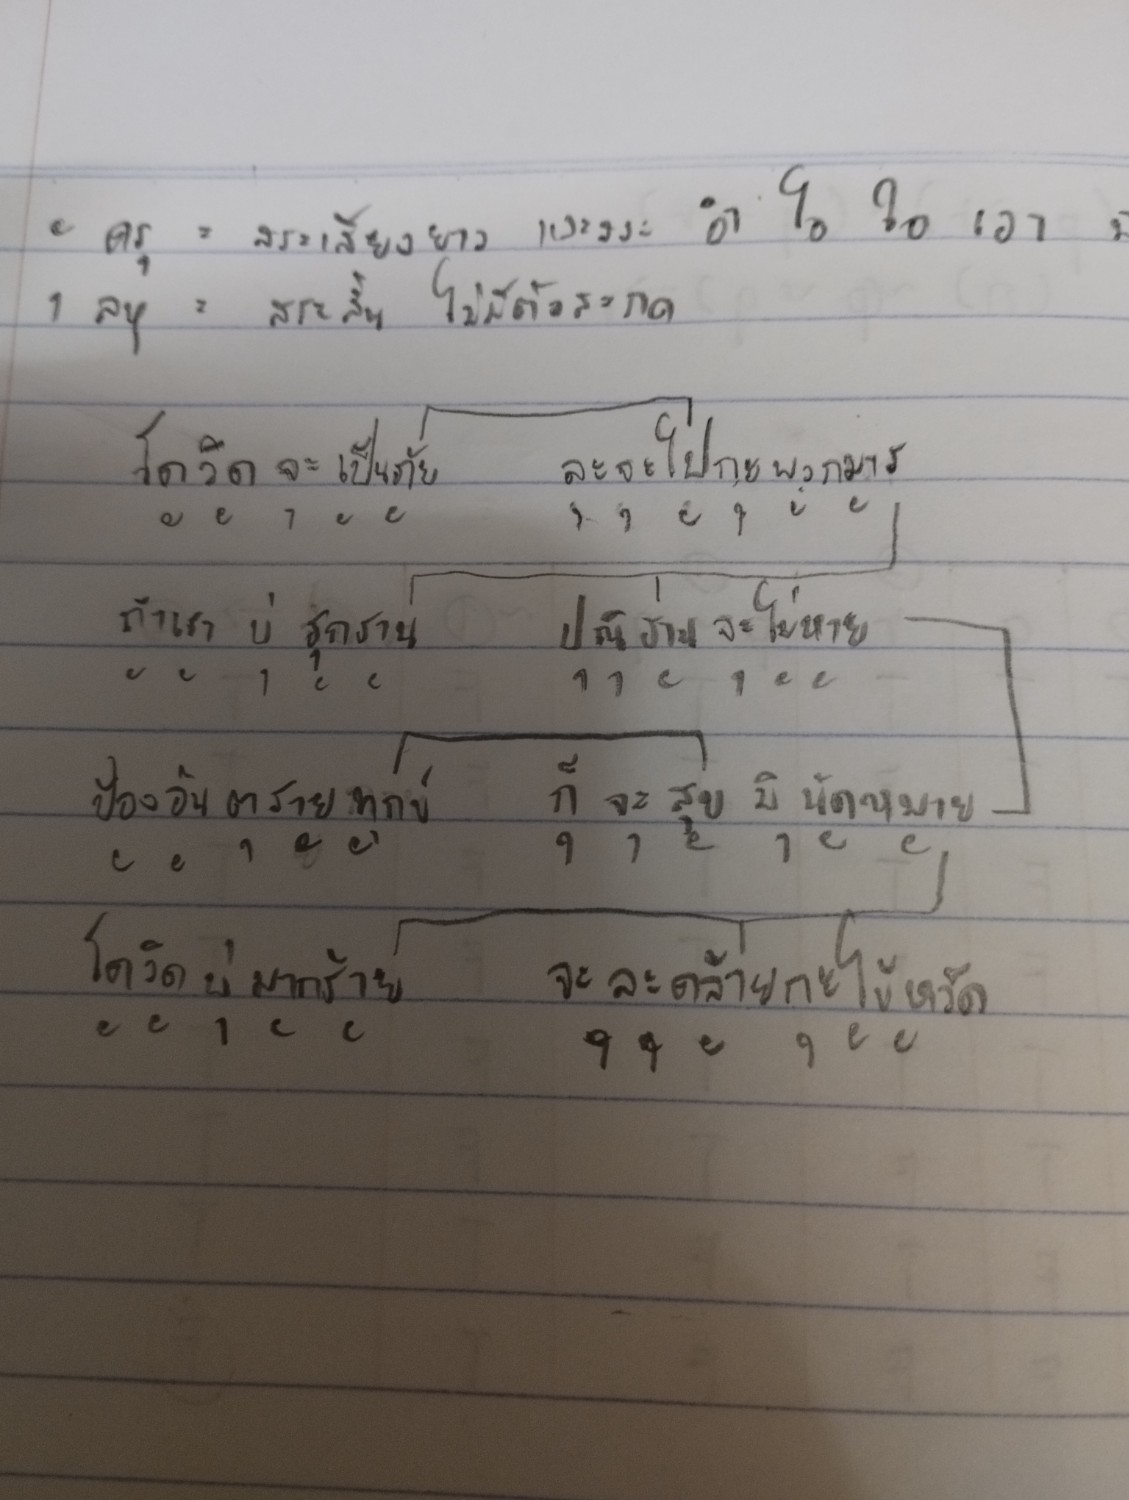 ั ครุ = สระเสียงยาว และสระ อำ ไอ ใอ เอา มี
ุ ลหุ = สระสั้น ไม่มีตัวสะกด
โควิดจะเป็นภัย ละจะไปกะพวกมาร
ั ั ุ ั ั ุ ุ ั ุ ั ั
ถ้าเรา บ่ รุกราน ปณิธานจะไม่หาย
ั ั ุ ั ั ุ ุ ั ุ ั ั
ป้องอันตรายทุกข์ ก็ จะ สุข มิ นัดหมาย
ั ั ุ ั ั ุ ุ ั ุ ั ั
โควิดบ่มากร้าย จะละคล้ายกะไข้หวัด
ั ั ุ ั ั ุ ุ ั ุ ั ั